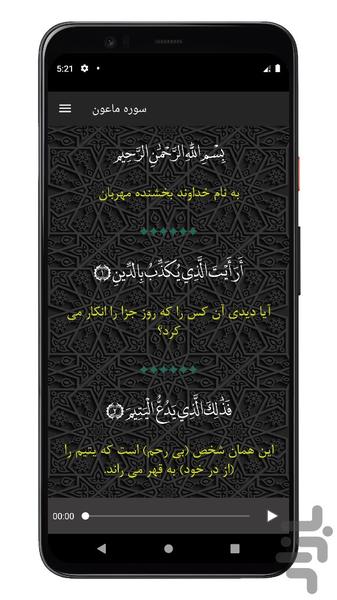 5:21
سوره ماعون
بِسْمِ اللَّهِ الرَّحْمَٰنِ الرَّحِيمِ
به نام خداوند بخشنده مهربان
أَرَأَيْتَ الَّذِي يُكَذِّبُ بِالدِّينِ ﴿١﴾
آیا دیدی آن کس را که روز جزا را انکار می
کرد؟
فَذَٰلِكَ الَّذِي يَدُعُّ الْيَتِيمَ ﴿٢﴾
این همان شخص (بی رحم) است که یتیم را
(از در خود) به قهر می راند.
00:00
بازار